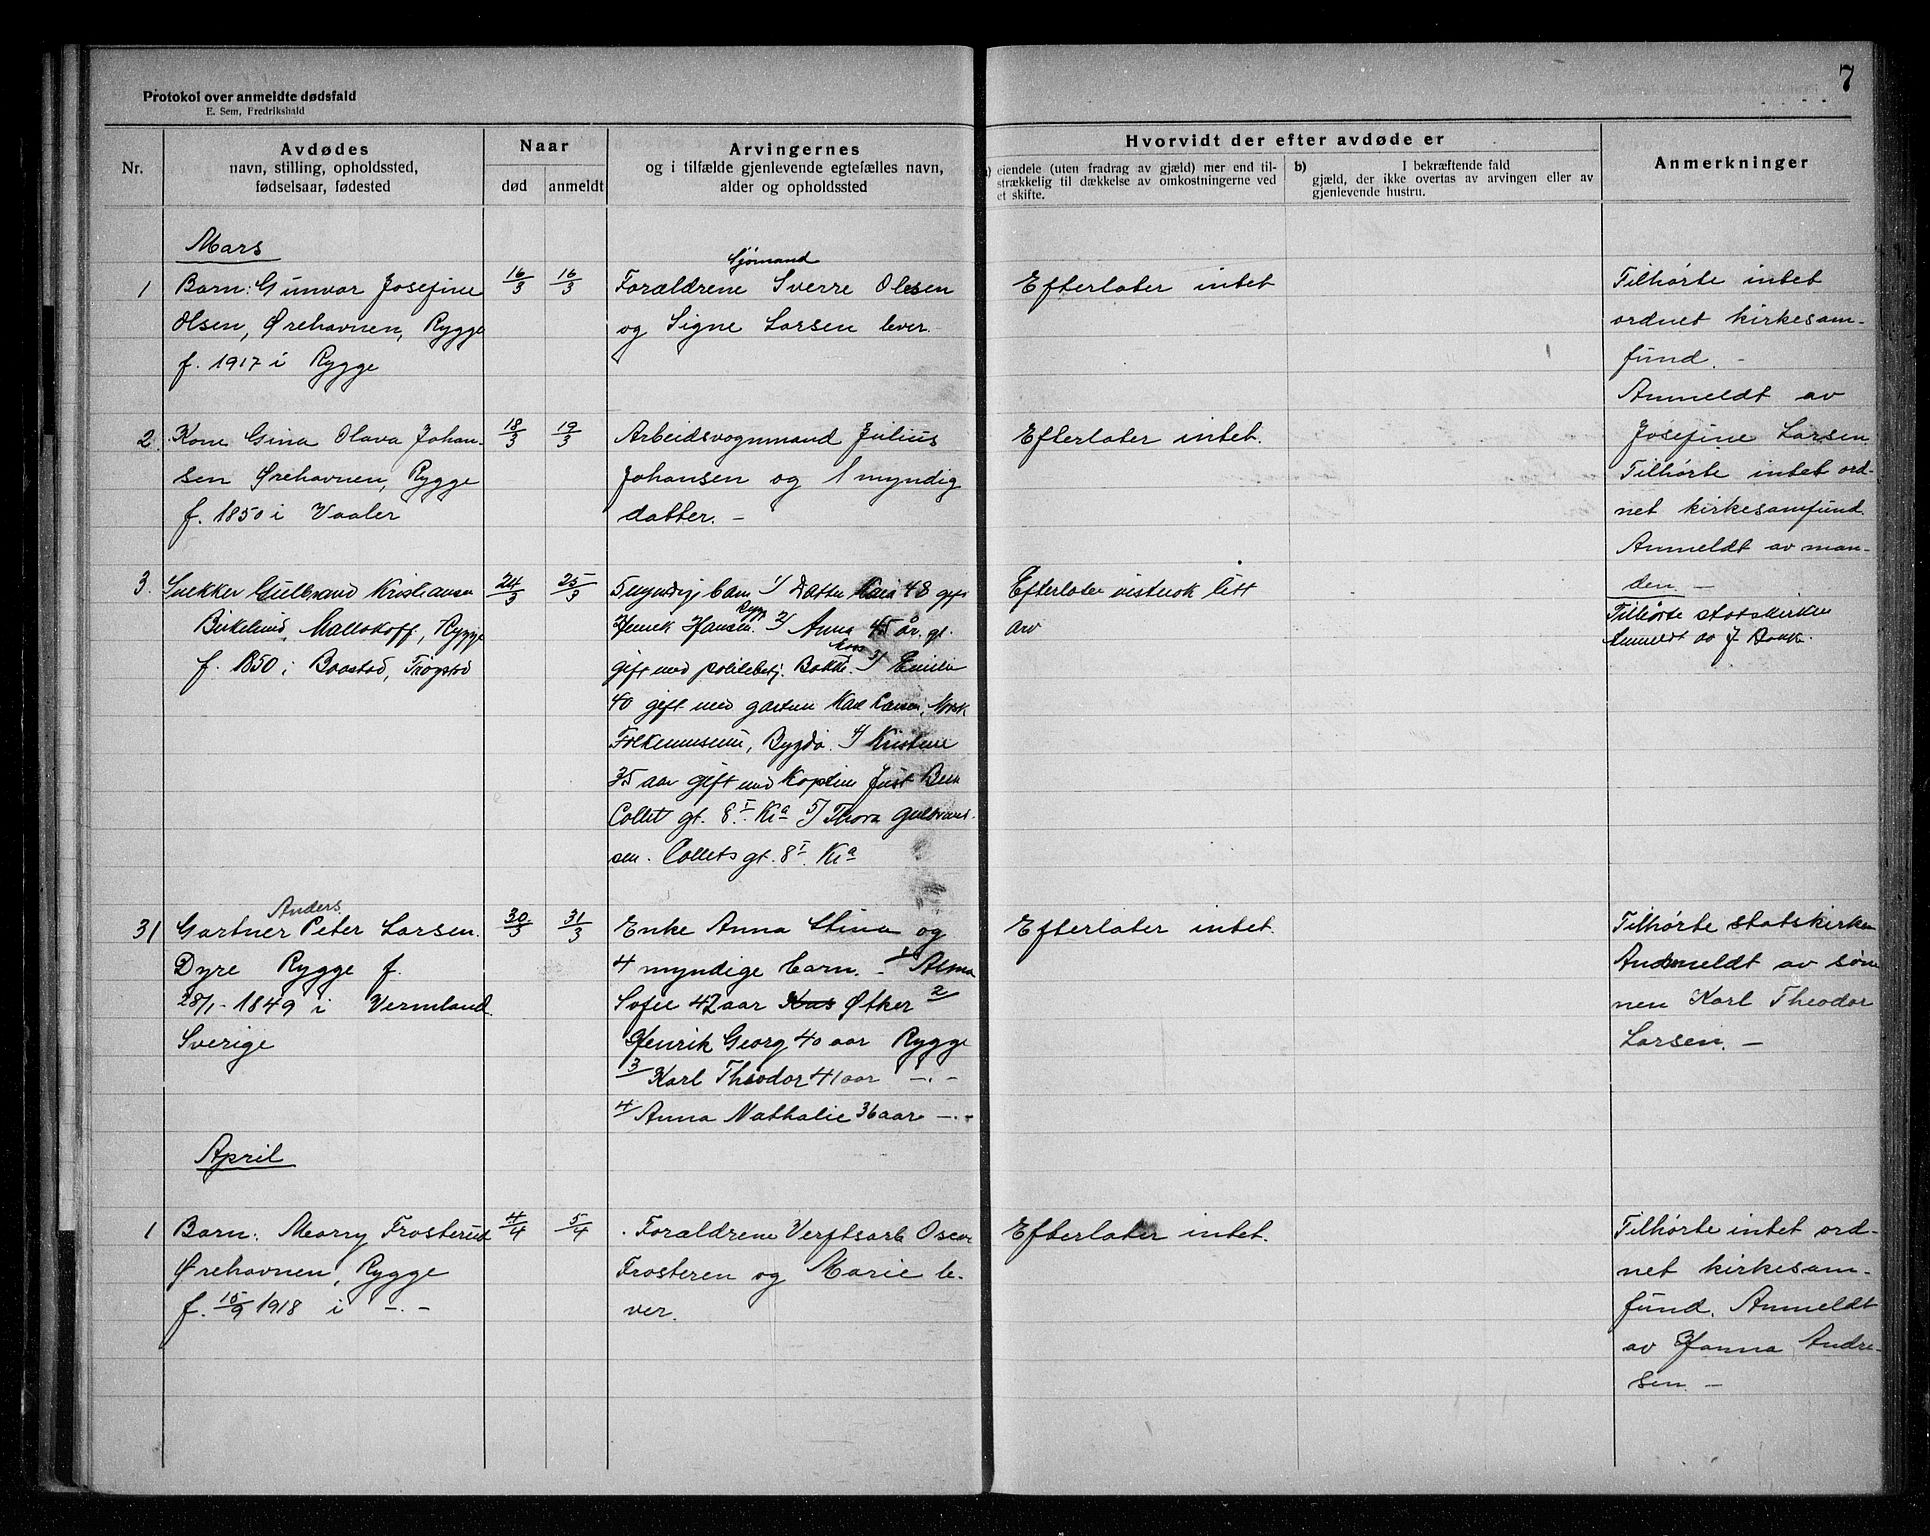 7
Protokol over anmeldte dødsfald
E. Sem, Fredrikshald
Nr.
Avdødes
navn, stilling, opholdssted,
fødselsaar, fødested
Naar
død
anmeldt
Arvingernes
og i tilfælde gjenlevende egtefælles navn,
alder og opholdssted
Hvorvidt der efter avdøde er
a) eiendele (uten fradrag av gjæld) mer end til-
strækkelig til dækkelse av omkostningerne ved
et skifte.
b) I bekræftende fald
gjæld, der ikke overtas av arvingen eller av
gjenlevende hustru.
Anmerkninger
Mars
1
Barn: Gunvor Josefine
Olsen, Ørehavnen, Rygge
f. 1917 i Rygge
16/3
16/3
Sjømand
Forældrene Sverre Olesen
og Signe Larsen lever.-
Efterlater intet
Tilhørte intet
ordnet kirkesam-
fund. -
Anmeldt av
Josefine Larsen
2
Kone Gina Olava Johan-
sen Ørehavnen, Rygge
f. 1850 i Vaaler
18/3
19/3
Arbeidsvognmand Julius
Johansen og 1 myndig
datter. -
Efterlater intet.
Tilhørte intet ord-
net kirkesamfund.
Anmeldt av man-
den -
3.
Snekker Gulbrand Kristiansen
Birkelund, Mallakoff, Rygge
f. 1850 i Baastad, Trøgstad
24/3
25/3
5 myndige barn 1/ Datter 48 gift
Rygge
Henrik Hansen. 2/ Anna 45 år. gt.
Moss
gift med politibetj. Bakke. 3/ Emilie
40 gift med gartner Karl Larsen, Norsk
Folkemuseum, Bygdø. 4/ Kristine
35 aar gift med Kaptein Just
Collet gt. 8 I. Kia 5/ Thora Gulbrand-
sen. Collets gt. 8 I. Kia
Efterlater vistnok litt
arv
Tilhørte statskirken
Anmeldt av J. Bakke.
31
Anders
Gartner Peter Larsen.
Dyre Rygge f.
28/1-1849 i Vermland.
Sverige
30/3
31/3
Enke Anna Stina og
4 myndige barn. - 1/ Alma
Sofie 42 aar Øtker 2/
Henrik Georg 40 aar Rygge
3/ Karl Theodor 41 aar -.-
4/ Anna Nathalie 36 aar -.-
Efterlater intet.
Tilhørte statskirken
Anmeldt av søn-
nen Karl Theodor
Larsen. -
April
1
Barn: Marry Frosterud
Ørehavnen, Rygge
f. 15/9 1918 i -.-
4/4
5/4
Forældrene Verftsarb Oscar
Frosteren og Marie le-
ver.
Efterlater intet.
Tilhørte intet ord-
net kirkesam-
fund. Anmeldt
av Hanna Andre-
sen. -